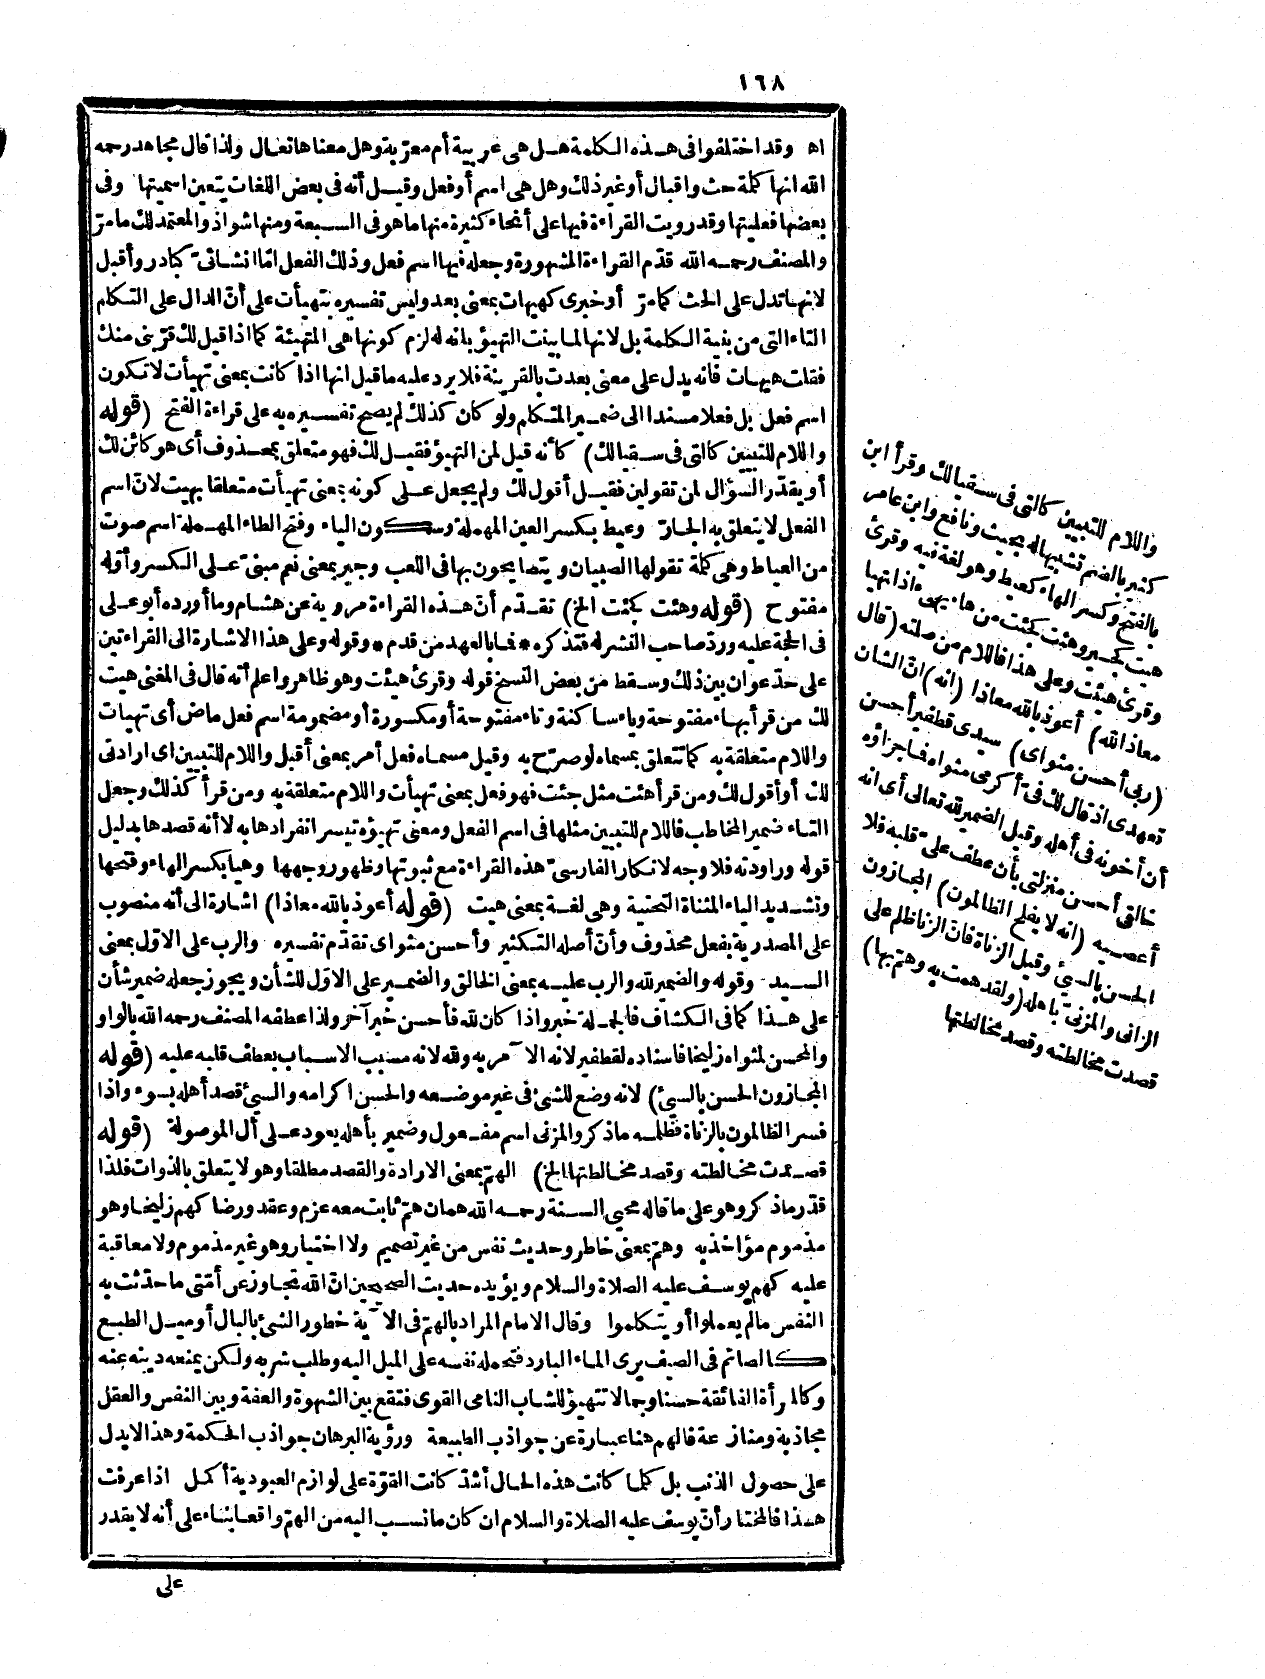 ١٦٨
اه وقد اختلفوا فى هذه الكلمة هل هى عربية أم معربة وهل معناها تعال ولذا قال مجاهد رحمه
الله انها كلمة حث واقبال أو غير ذلك وهل هى اسم أو فعل وقيل أنه فى بعض اللغات يتعين اسميتها وفى
بعضها فعليتها وقد رويت القراءة فيها على أنحاء كثيرة منها ما هو فى السبعة ومنها شواذ والمعتمد لك ما مرّ
والمصنف رحمه الله قدّم القراءة المشهورة وجعله فيها اسم فعل وذلك الفعل امّا انشائىّ كبادر وأقبل
لانها تدل على الحث كما مرّ أو خبرى كهيهات بمعنى بعد وليس تفسيره بتهيأت على أنّ الدال على التكلم
التاء التى من بنية الكلمة بل لانها لما بينت التهيؤ بانه له لزم كونها هى المتهيئة كما اذا قيل لك قرّبنى منك
فقلت هيهات فانه يدل على معنى بعدت بالقرينة فلا يرد عليه ما قيل انها اذا كانت بمعنى تهيأت لا تكون
اسم فعل بل فعلا مسندا الى ضمير المتكلم ولو كان كذلك لم يصح تفسيره به على قراءة الفتح (قوله
واللام للتبيين كالتى فى سقيا لك) كأنه قيل لمن التهيؤ فقيل لك فهو متعلق بمحذوف أى هو كائن لك
أو يقدّر السؤال لمن تقولين فقيل أقول لك ولم يجعل على كونه بمعنى تهيأت متعلقا بهيت لانّ اسم
الفعل لا يتعلق به الجارّ وعيط بكسر العين المهملة وسكون الياء وفتح الطاء المهملة اسم صوت
من العياط وهى كلمة تقولها الصبيان ويتصايحون بها فى اللعب وجير بمعنى نعم مبنىّ على الكسر وأوّله
مفتوح (قوله وهئت كجئت الخ) تقدّم أنّ هذه القراءة مروية عن هشام وما أورده أبو على
فى الحجة عليه وردّ صاحب النشر له فتذكره * فما بالعهد من قدم * وقوله وعلى هذا الاشارة الى القراءتين
على حدّ عوان بين ذلك وسقط من بعض النسخ قوله وقرئ هيئت وهو ظاهر واعلم أنه قال فى المغنى هيت
لك من قرأ بهاء مفتوحة وياء ساكنة وتاء مفتوحة أو مكسورة أو مضمومة اسم فعل ماض أى تهيأت
واللام متعلقة به كما تتعلق بمسماه لو صرّح به وقيل مسماه فعل أمر بمعنى أقبل واللام للتبيين اى ارادتى
لك أو أقول لك ومن قرأ هئت مثل جئت فهو فعل بمعنى تهيأت واللام متعلقة به ومن قرأ كذلك وجعل
التاء ضمير المخاطب فاللام للتبيين مثلها فى اسم الفعل ومعنى تهيؤه تيسر انفرادها به لا أنه قصدها بدليل
قوله وراودته فلا وجه لانكار الفارسىّ هذه القراءة مع ثبوتها وظهور وجهها وهيا بكسر الهاء وفتحها
وتشديد الياء المثناة التحتية وهى لغة بمعنى هيت (قوله أعوذ بالله معاذا) اشارة الى أنه منصوب
على المصدرية بفعل محذوف وأنّ أصله التنكير وأحسن مثواى تقدّم تفسيره والرب على الاوّل بمعنى
السيد وقوله والضمير لله والرب عليه بمعنى الخالق والضمير على الاوّل للشأن ويجوز جعله ضمير شأن
على هذا كما فى الكشاف فالجملة خبر واذا كان لله فأحسن خبر آخر ولذا عطفه المصنف رحمه الله بالواو
والمحسن لمثواه زليخا فاسناده لقطفير لانه الآمر به ولله لانه مسبب الاسباب بعطف قلبه عليه (قوله
المجازون الحسن بالسئ) لانه وضع للشئ فى غير موضعه والحسن اكرامه والسئ قصد أهله بسوء واذا
فسر الظالمون بالزناة فظلمه ما ذكر والمزنى اسم مفعول وضمير بأهله يعود على أل الموصولة (قوله
قصدت مخالطته وقصد مخالطتها الخ) الهمّ بمعنى الارادة والقصد مطلقا وهو لا يتعلق بالذوات فلذا
قدّر ما ذكر وهو على ما قاله محيى السنة رحمه الله همان همّ ثابت معه عزم وعقد ورضا كهم زليخا وهو
مذموم مؤاخذ به وهمّ بمعنى خاطر وحديث نفس من غير تصميم ولا اختيار وهو غير مذموم ولا معاقبة
عليه كهم يوسف عليه الصلاة والسلام ويؤيده حديث الصحيحين انّ الله تجاوز عن أمّتى ما حدّثت به
النفس ما لم يعملوا أو يتكلموا وقال الامام المراد بالهمّ فى الآية خطور الشئ بالبال أو ميل الطبع
كالصائم فى الصيف يرى الماء البارد فتحمله نفسه على الميل اليه وطلب شربه ولكن يمنعه دينه عنه
وكالمرأة الفائقة حسنا وجمالا تتهيؤ للشاب النامى القوى فتقع بين الشهوة والعفة وبين النفس والعقل
مجاذبة ومنازعة فالهم هنا عبارة عن جواذب الطبيعة ورؤية البرهان جواذب الحكمة وهذا لا يدل
على حصول الذنب بل كلما كانت هذه الحال أشدّ كانت القوّة على لوازم العبودية أكمل اذا عرفت
هذا فالمختار أنّ يوسف عليه الصلاة والسلام ان كان ما نسب اليه من الهمّ واقعا بناء على أنه لا يقدر
على
واللام للتبيين كالتى فى سقيا لك وقرأ ابن
كثير بالضم تشبيها له بحيث ونافع وابن عامر
بالفتح وكسر الهاء كعيط وهو لغة فيه وقرئ
هيت كجير وهئت كجئت من هاء يهىء اذا تهيا
وقرئ هيئت وعلى هذا فاللام من صلته (قال
معاذ الله) أعوذ بالله معاذا (انه) انّ الشان
(ربى أحسن مثواى) سيدى قطفير أحسن
تعهدى اذ قال لك فىّ أكرمى مثواه فما جزاؤه
أن أخونه فى أهله وقيل الضمير لله تعالى أى انه
خالقى أحسن منزلتى بأن عطف علىّ قلبه فلا
أعصيه (انه لا يفلح الظالمون) المجازون
الحسن بالسئ وقيل الزناة فانّ الزنا ظلم على
الزانى والمزنىّ بأهله (ولقد همت به وهمّ بها)
قصدت مخالطته وقصد مخالطتها